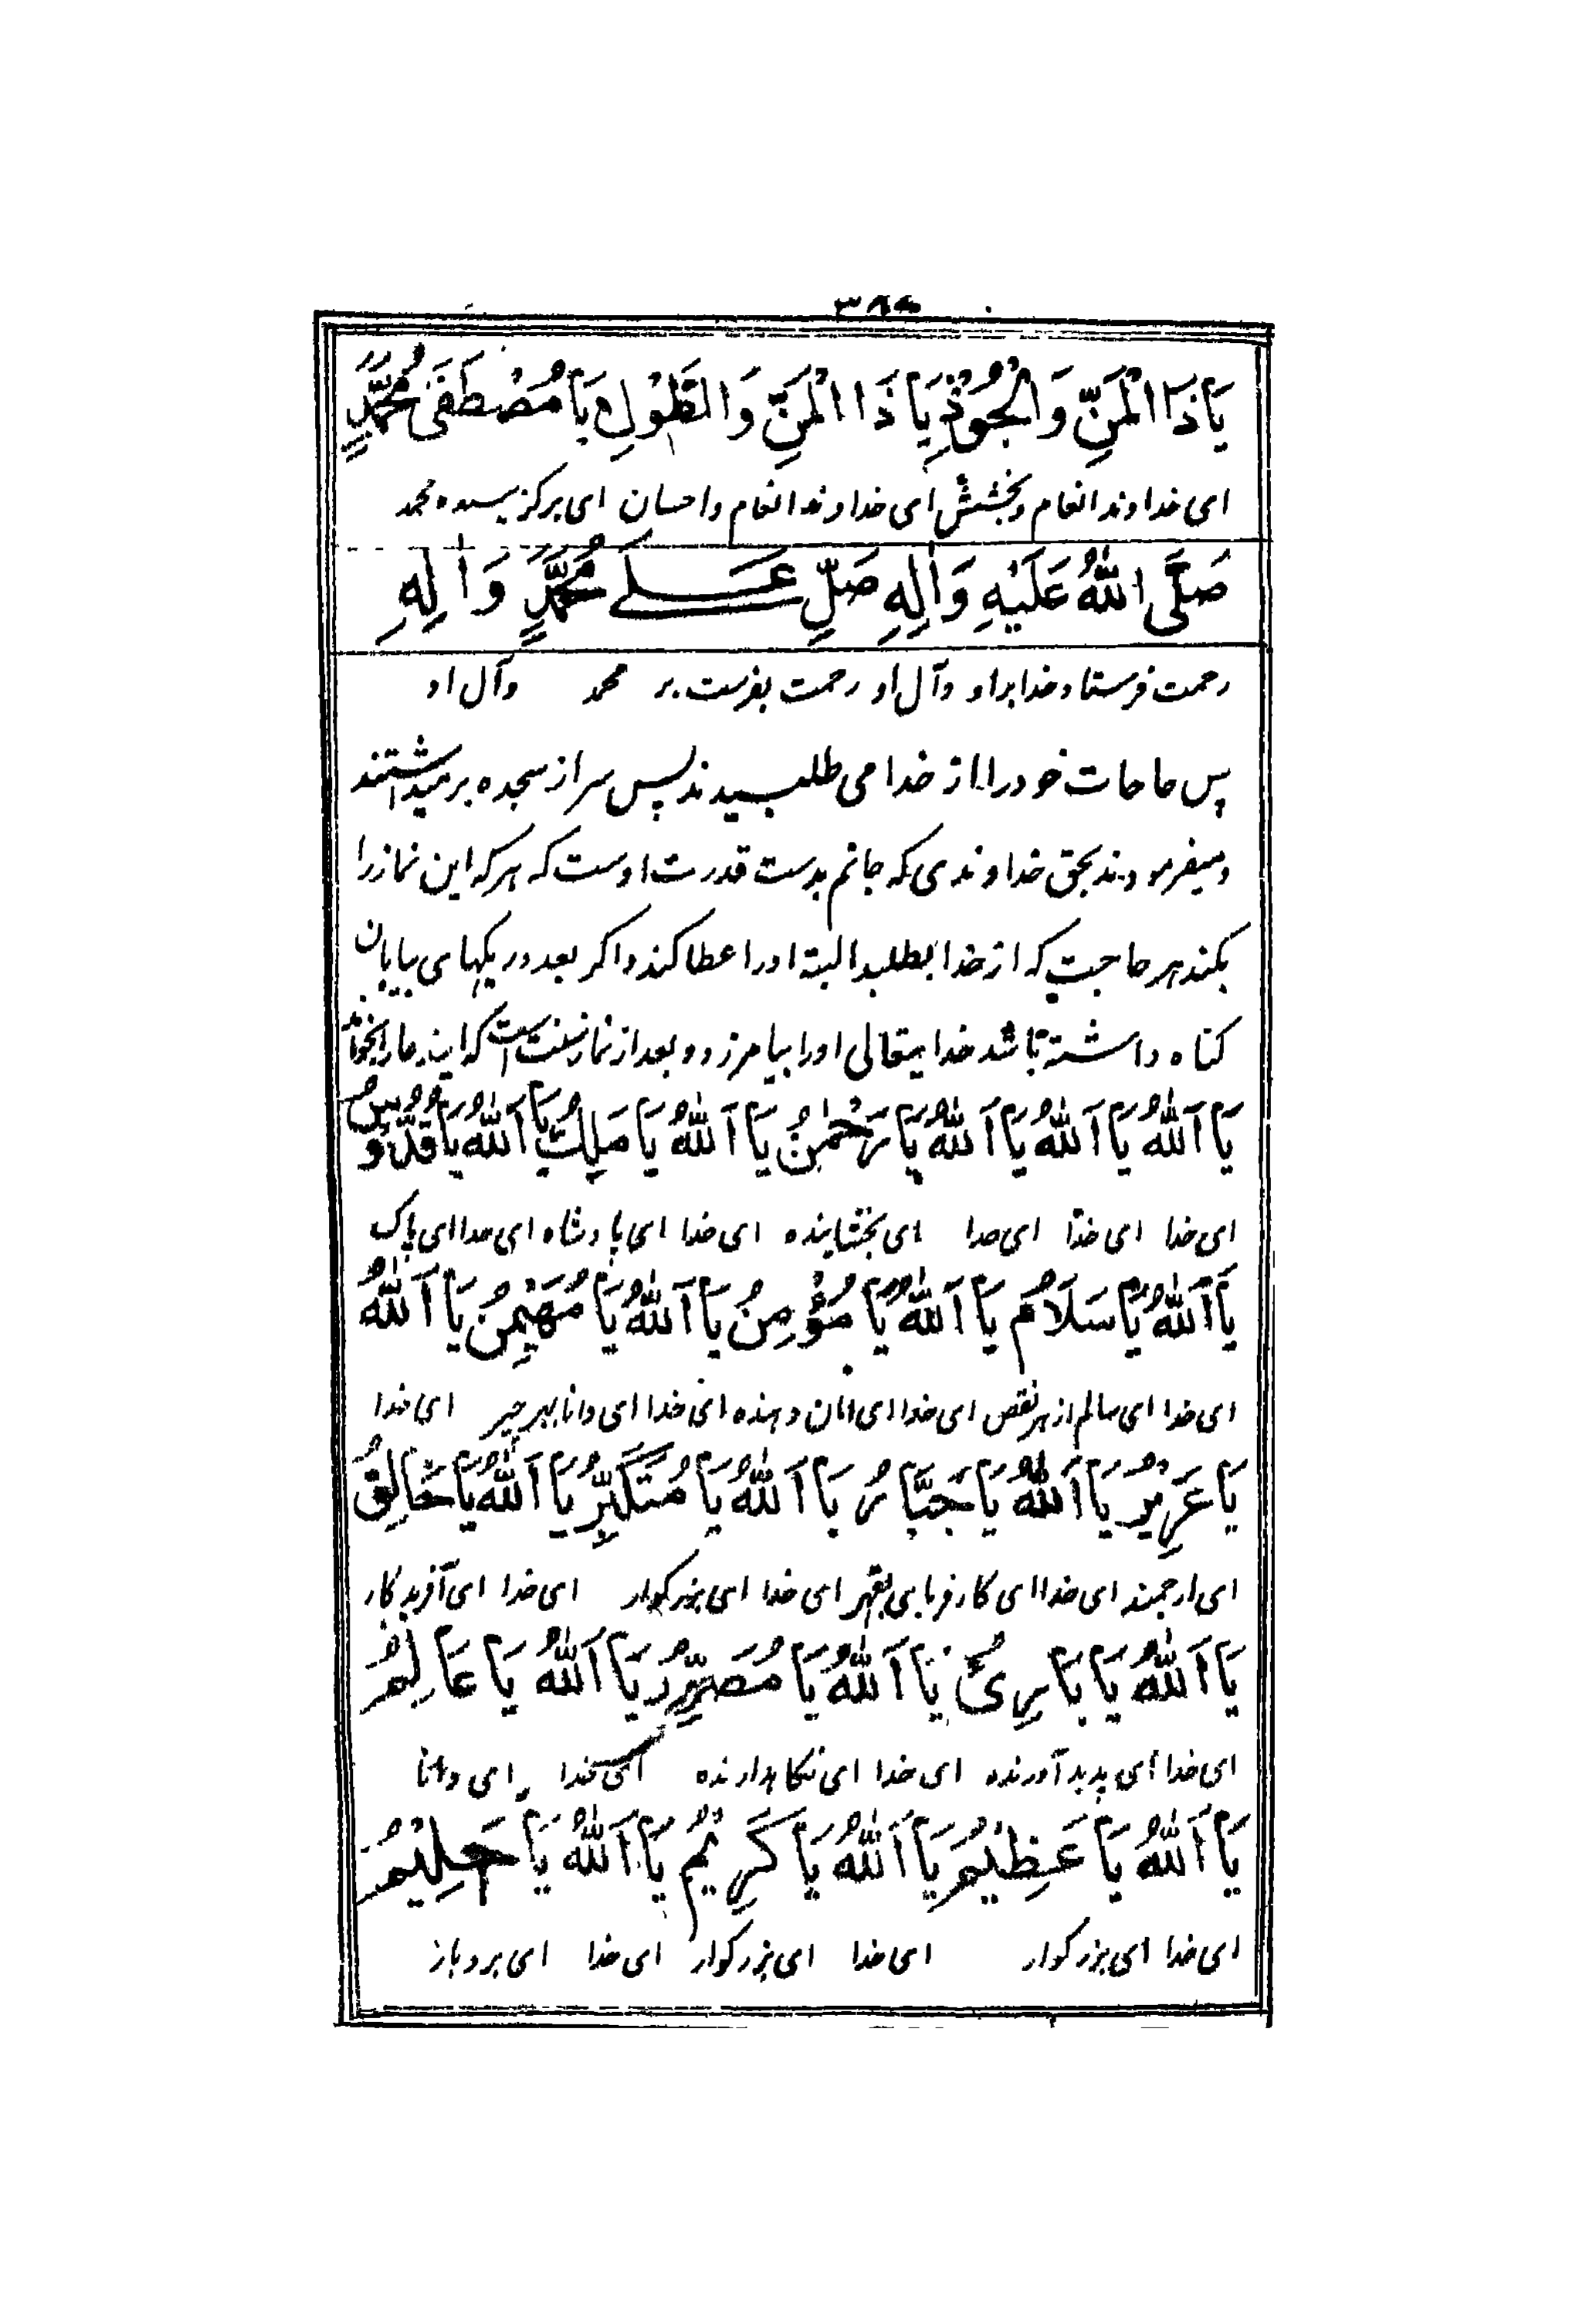 يَا ذَا الْمَنِّ وَالْجُوْدِ يَا ذَا الْمَنِّ وَالطَّوْلِ يَا مُصْطَفَى مُحَمَّدٍ
ای خداوند انعام و بخشش ای خداوند انعام و احسان ای برکزیده محمد
صَلَّى اللّٰهُ عَلَيْهِ وَاٰلِهِ صَلِّ عَلٰے مُحَمَّدٍ وَاٰلِهِ
رحمت فرستاد خدا بر او و آل او رحمت بفرست بر محمد و آل او
پس حاجات خود را از خدا می طلبیدند پس سر از سجده برمیداشتند
و میفرمودند بحق خداوندی که جانم بدست قدرت اوست که هر که این نماز را
بکند هر حاجتی که از خدا بطلبد البته او را عطا کند و اکر بعدد ریکهای بیابان
کناه داشته باشد خدایتعالی او را بیامرزد و بعد از نماز سنت است که این دعا را بخواند
يَا اَللّٰهُ يَا اَللّٰهُ يَا اَللّٰهُ يَا رَحْمٰنُ يَا اَللّٰهُ يَا مَلِكُ يَا اَللّٰهُ يَا قُدُّوْسُ
ای خدا ای خدا ای خدا ای بخشاینده ای خدا ای پادشاه ای خدا ای پاک
يَا اَللّٰهُ يَا سَلَامُ يَا اَللّٰهُ يَا مُؤْمِنُ يَا اَللّٰهُ يَا مُهَيْمِنُ يَا اَللّٰهُ
ای خدا ای سالم از هر نقص ای خدا ای امان دهنده ای خدا ای دانا بهر چیز ای خدا
يَا عَزِيْزُ يَا اَللّٰهُ يَا جَبَّارُ يَا اَللّٰهُ يَا مُتَكَبِّرُ يَا اَللّٰهُ يَا خَالِقُ
ای ارجمند ای خدا ای کارفرمای بقهر ای خدا ای بزرکوار ای خدا ای آفریدکار
يَا اَللّٰهُ يَا بَارِئُ يَا اَللّٰهُ يَا مُصَوِّرُ يَا اَللّٰهُ يَا عَالِمُ
ای خدا ای پدید آورنده ای خدا ای نکاهدارنده ای خدا ای دانا
يَا اَللّٰهُ يَا عَظِيْمُ يَا اَللّٰهُ يَا كَرِيْمُ يَا اَللّٰهُ يَا حَلِيْمُ
ای خدا ای بزرکوار ای خدا ای بزرکوار ای خدا ای بردبار